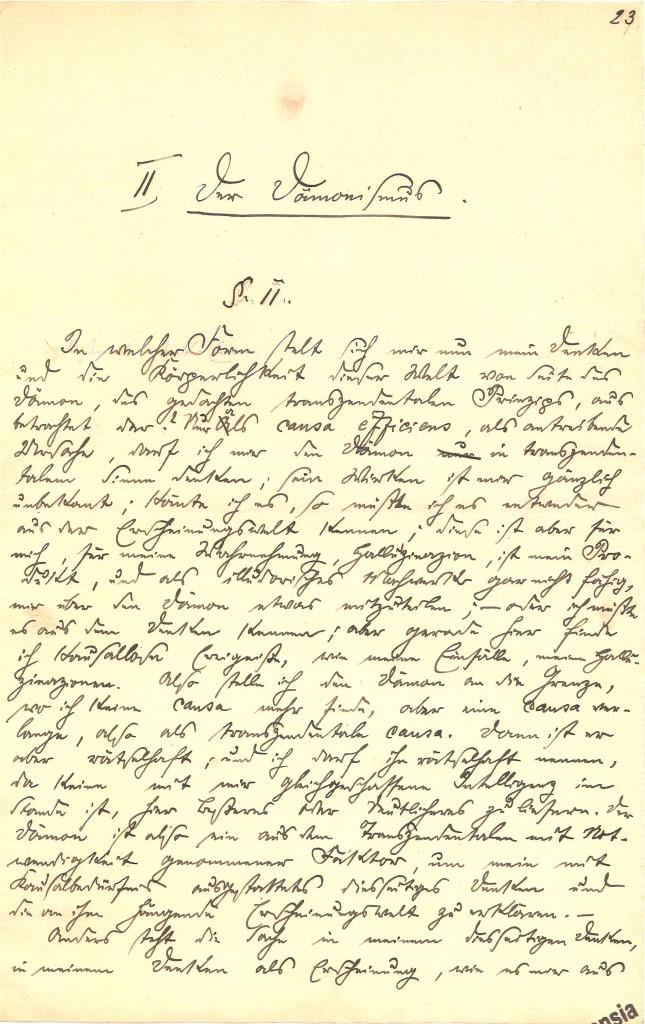 23
II Der Dämonismus.
§. 11.
In welcher Form stelt sich mir nun mein Denken
und die Körperlichkeit dieser Welt von seite des
Dämon, des gedachten transzendentalen Prinzips, aus
betrachtet dar? Nur als causa efficiens, als antreibende
Ursache, darf ich mir den Dämon nur in transzenden-
talem Sinne denken; sein Wirken ist mir gänzlich
unbekant; könte ich es, so müßte ich es entweder
aus der Erscheinungswelt kennen; diese ist aber für
mich, für meine Wahrnehmung, Halluzinazion, ist mein Pro-
dukt, und als illusorisches Machwerk gar nicht fähig,
mir über den Dämon etwas mitzuteilen; – oder ich müßte
es aus dem Denken kennen; aber gerade hier finde
ich kausallose Ereigniße, wie meine Einfälle, meine Hallu-
zinazionen. Also stelle ich den Dämon an die Grenze,
wo ich keine causa mehr finde, aber eine causa ver-
lange, also als transzendentale causa. Dann ist er
aber rätselhaft; und ich darf ihn rätselhaft nennen,
da keine mit mir gleichgeschaffene Intelligenz im
stande ist, hier beßeres oder deutlicheres zu liefern. Der
Dämon ist also ein aus dem Transzendentalen mit Not-
wendigkeit genommener Faktor, um mein mit
Kausalbedürfnis ausgestattetes diesseitiges Denken und
die an ihm hängende Erscheinungswelt zu erklären. –
Anders steht die Sache in meinem diesseitigen Denken,
in meinem Denken als Erscheinung, wie es mir aus
ensia